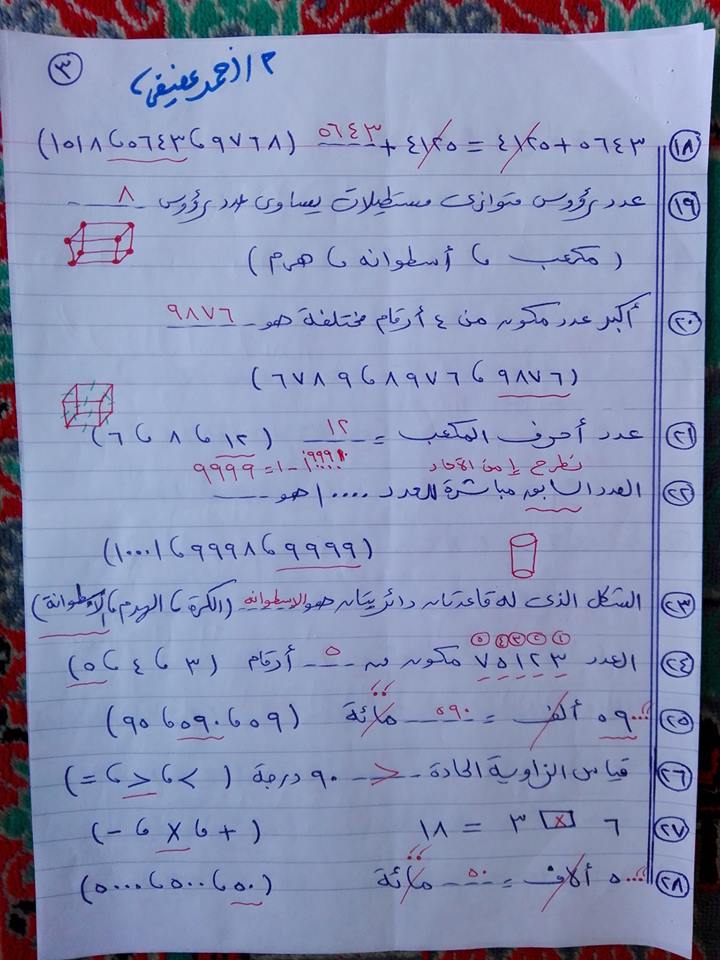 ٣
م / أحمد عفيفي
١٨ ٥٦٤٣ + ٤١٢٥ = ٤١٢٥ + ٥٦٤٣ (٩٧٦٨ ، ٥٦٤٣ ، ١٥١٨)
١٩ عدد رؤوس متوازى مستطيلات يساوى عدد رؤوس ٨
( مكعب ، أسطوانه ، هرم )
٢٠ أكبر عدد مكون من ٤ أرقام مختلفة هو ٩٨٧٦
(٩٨٧٦ ، ٨٩٧٦ ، ٦٧٨٩)
٢١ عدد أحرف المكعب = ١٢ (١٢ ، ٨ ، ٦)
نطرح ١ من الآحاد ١٠٠٠٠ - ١ = ٩٩٩٩
٢٢ العدد السابق مباشرة للعدد ١٠٠٠٠ هو
(٩٩٩٩ ، ٩٩٩٨ ، ١٠٠٠١)
٢٣ الشكل الذى له قاعدتان دائريتان هو الاسطوانه (الكرة ، الهرم ، الأسطوانة)
٥ ٤ ٣ ٢ ١
٢٤ العدد ٧٥١٢٣ مكون من ٥ أرقام (٣ ، ٤ ، ٥)
٢٥ ٥٩ ألف = ٥٩٠ مائة (٥٩ ، ٥٩٠ ، ٩٥)
٢٦ قياس الزاوية الحادة < ٩٠ درجة (> ، < ، =)
٢٧ ٦ × ٣ = ١٨ (+ ، × ، -)
٢٨ ٥ آلاف = ٥٠ مائة (٥٠ ، ٥٠٠ ، ٥٠٠٠)